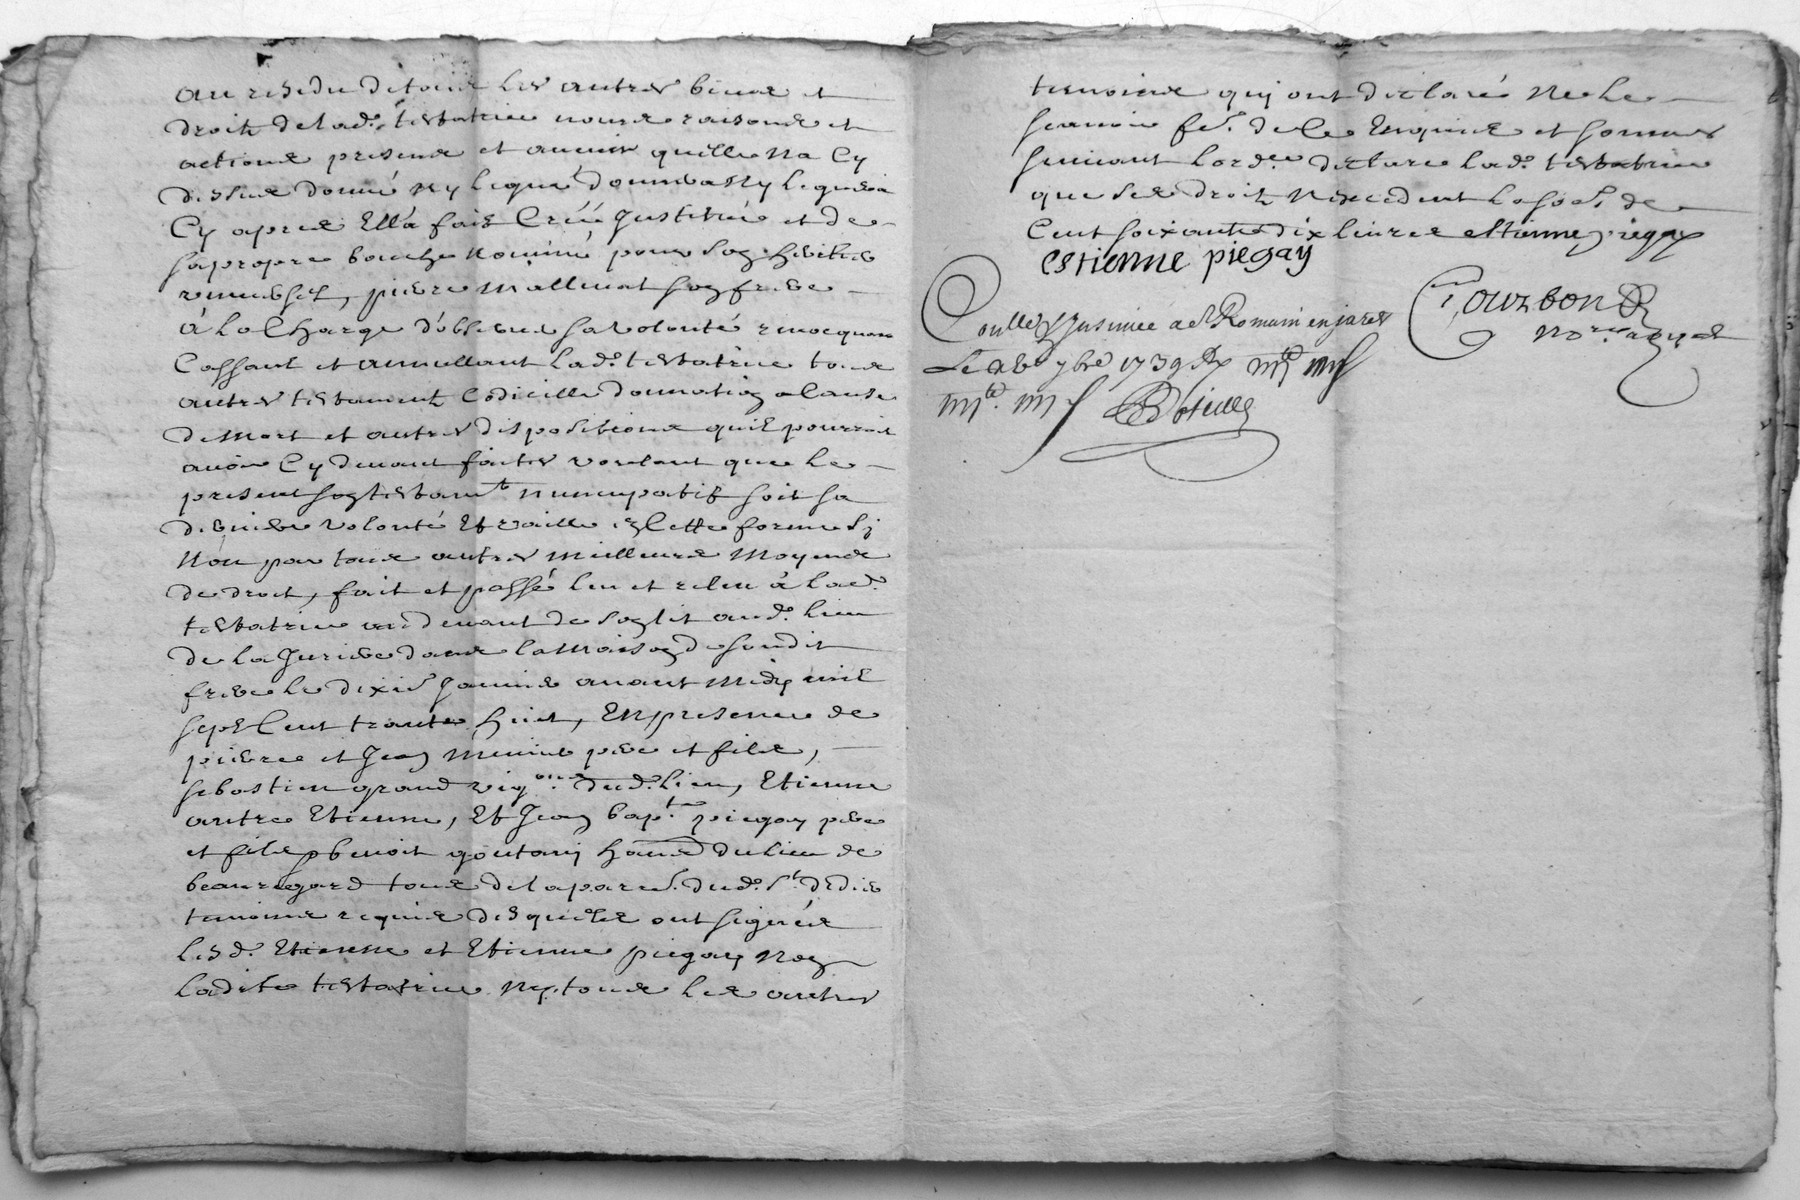 au residu de tous les autres biens et
droitz de lad.e testatrice noms raisons et
actions presens et avenir quelle na Cy
dessus donné ny legué donnera ny leguera
Cy apres Ella fait Créé Justitué et de
sa propre bouche Nommé pour son heritier
universel, pierre Mallurat son frere
à la Charge d'observer sa volonté revocquant
Cassant et annullant lad.e testatrice tous
autres testamentz Codicille donnation a Cause
de Mort et autres dispositions quil pourroit
avoir Cy devant faites voulant que le
present son testam.t nuncupatif soit sa
derniere volonté Et vaille en Cette forme Si
Non par tous autres meilleurs Moyens
de droit, fait et passé leu et releu à lad.e
testatrice au devant de son lit aud.t lieu
de la Jurire dans la Maison de sondit
frere le dixie. Janvier avant Midy mil
sept Cent trante huit, En presence de
pierre et Jean pere et fils,
sebastien grand vig.ons dud.t lieu, Etienne
autre Etienne, Et Jean bap.te piegay pere
et fils benoit goutany du lieu de
beauregard tous de la paroi. dud.t S.t didie
temoins requis desquels ont signés
les d.t Etienne et Etienne piegay Non
ladite testatrice Ny tous les autres
temoins qui ont déclaré Ne le
scavoir f.e de Ce Enquis et sommes
suivant l'ord.ce declare lad.e testatrice
que ses droitz Nexcedent la so.e de
Cent soixante dix livres estienne piegay
estienne piegay
Courbon
No.re
Coullé & Jnsinué a S.t Romain en jarez
Le 7bre 1739